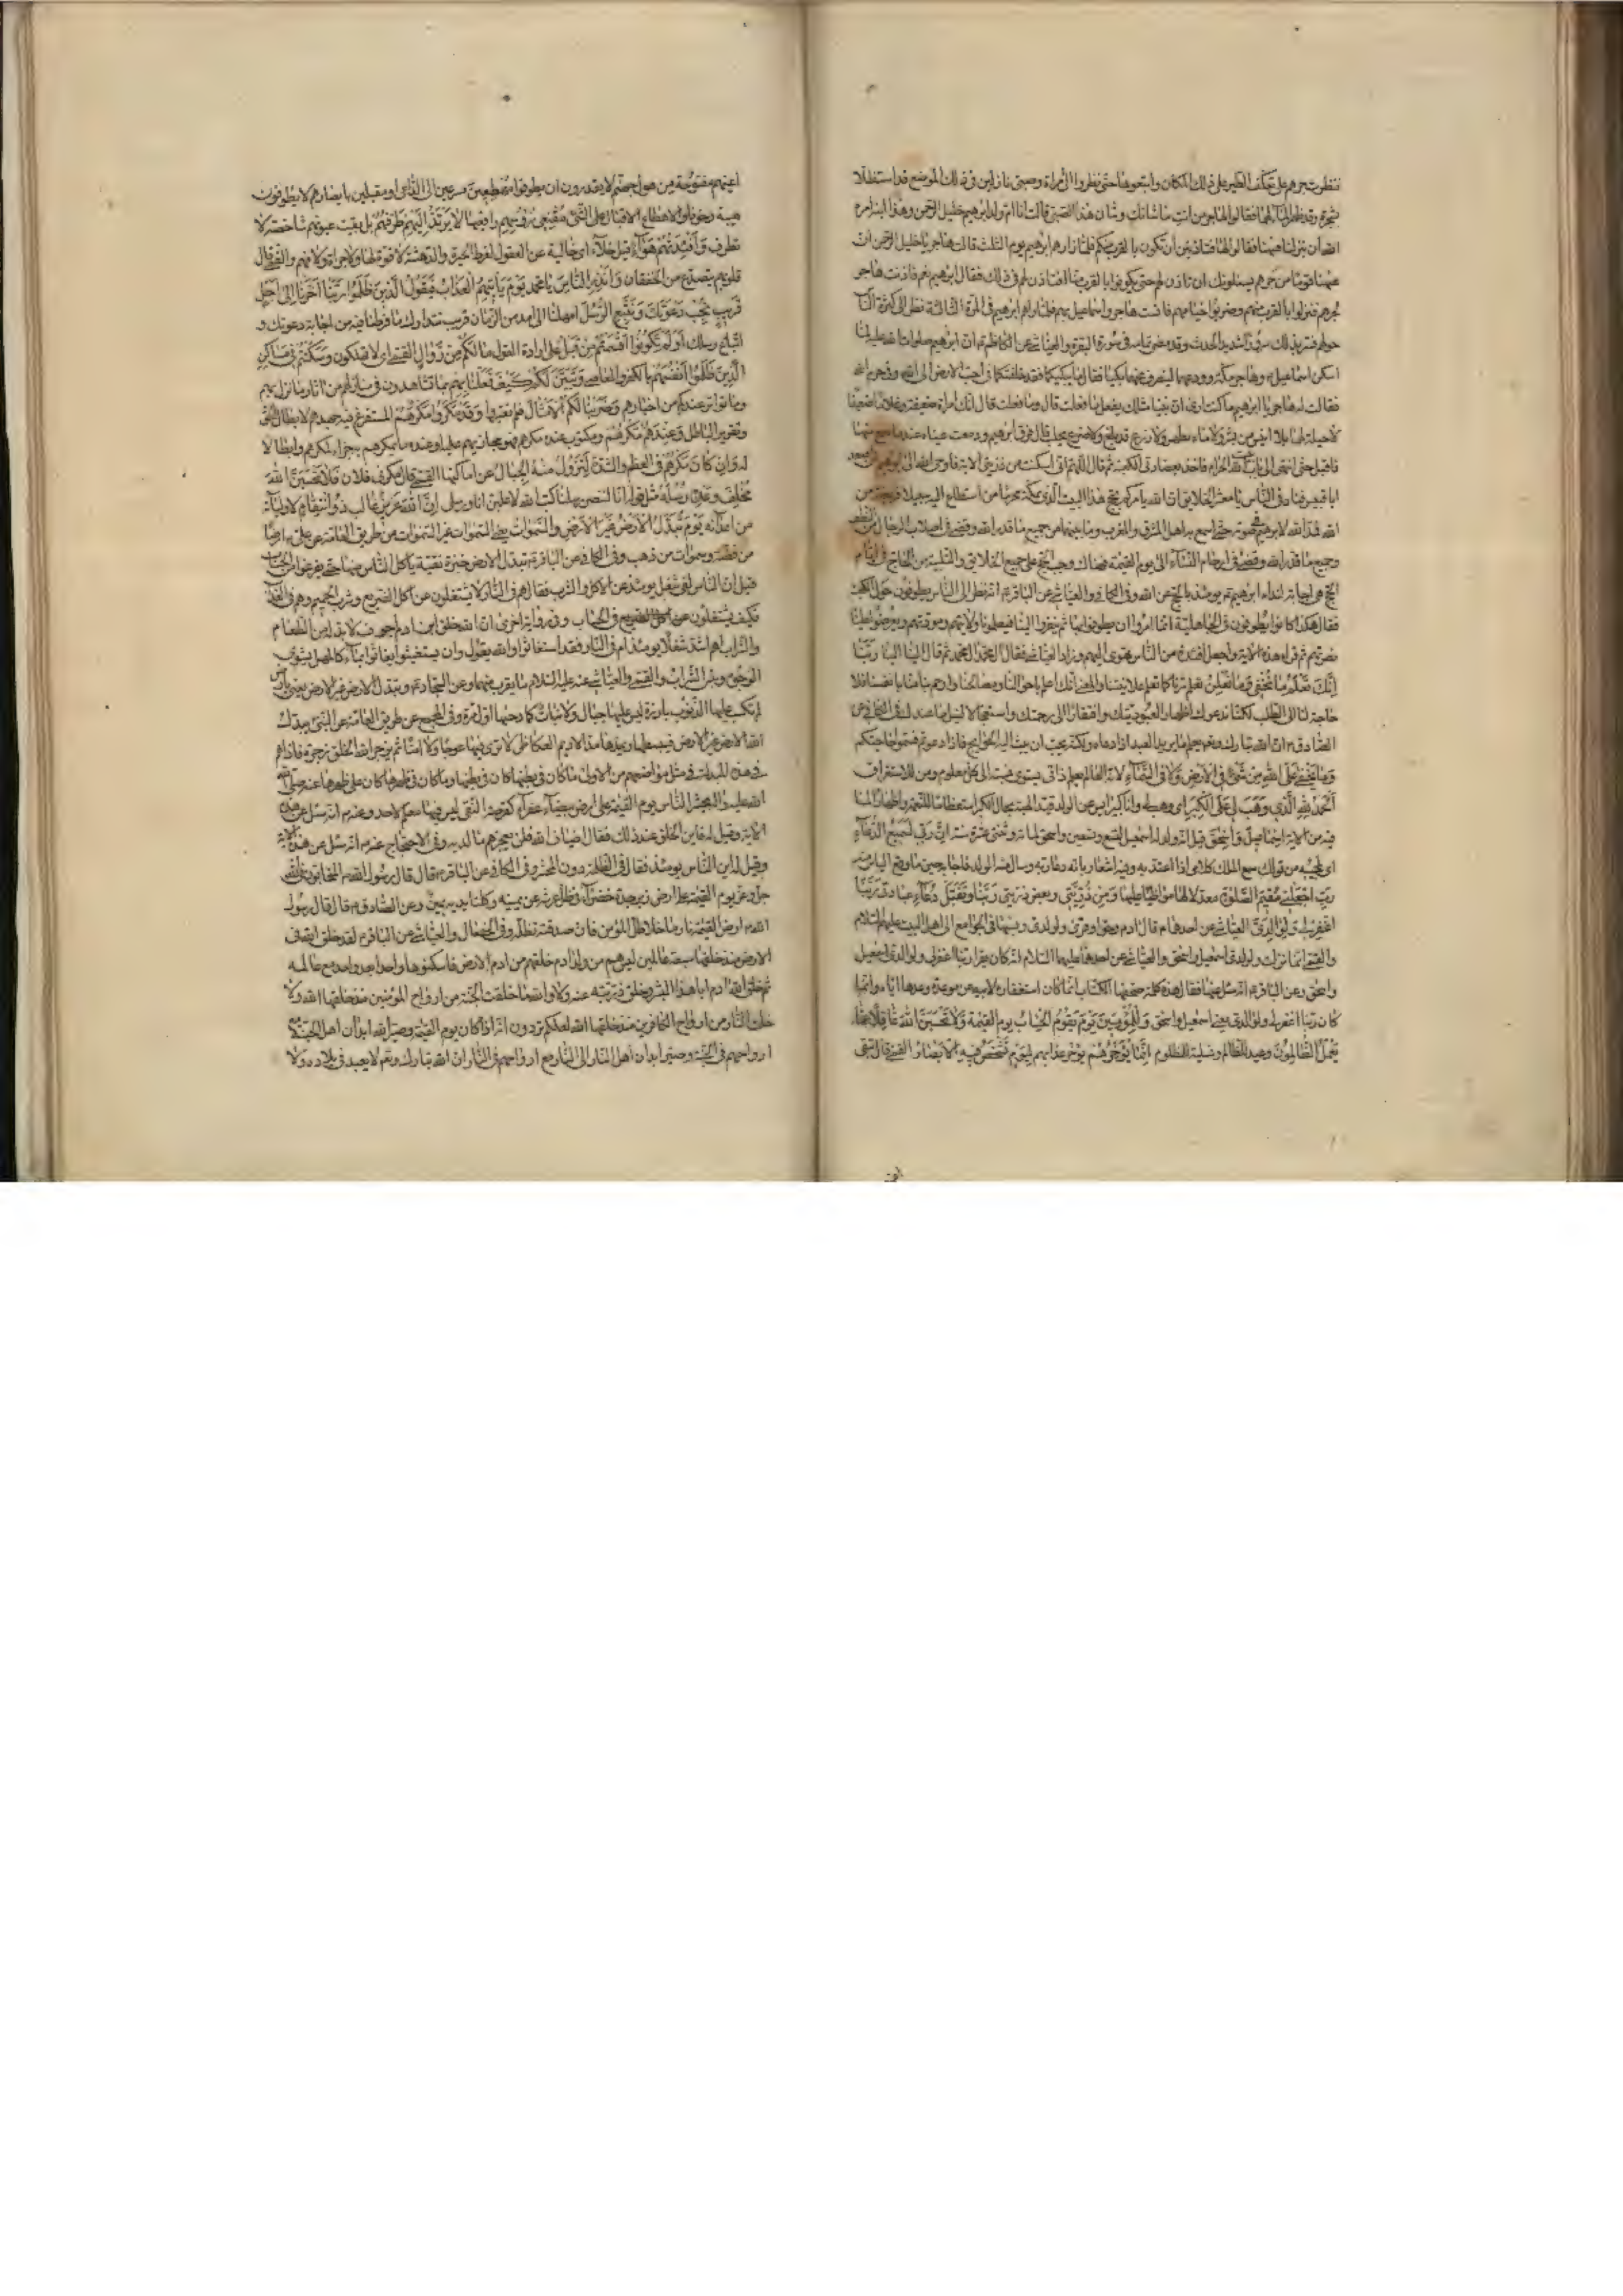 فنظرت جرهم على تعكف الطير على ذلك المكان واتبعوها حتى نظروا الى امراة وصبى نازلين فى ذلك الموضع قد استظلا
بشجرة وقد ظهر الماء لهما فقالوا لهاجر من انت وما شانك وشان هذا الصبى قالت انا ام ولد ابرهيم خليل الرحمن وهذا ابنه امره
الله ان ينزلنا ههنا فقالوا لها فتاذنين ان نكون بالقرب منكم فلما زارهم ابرهيم يوم الثالث قالت هاجر يا خليل الرحمن ان
ههنا قوما من جرهم يسئلونك ان تاذن لهم حتى يكونوا بالقرب منا افتاذن لهم فى ذلك فقال ابرهيم نعم فاذنت هاجر
لجرهم فنزلوا بالقرب منهم وضربوا خيامهم فانست هاجر واسماعيل بهم فلما زارهم ابرهيم فى المرة الثالثة نظر الى كثرة الناس
حولهم فسر بذلك سرورا شديدا الحديث وقد مضى تمامه فى سورة البقرة والعياشى عن الكاظم ان ابرهيم صلوات الله عليه لما
اسكن اسماعيل وهاجر مكة وودعهما لينصرف عنهما بكيا فقال لهما ما يبكيكما فقد خلفتكما فى احب الارض الى الله وفى حرم الله
فقالت له هاجر يا ابرهيم ما كنت ارى ان نبيا مثلك يفعل ما فعلت قال وما فعلت قالت انك خلفت امراة ضعيفة وغلاما ضعيفا
لا حيلة لهما بلا انيس من بشر ولا ماء يظهر ولا زرع قد بلغ ولا ضرع يحلب قال فرق ابرهيم ودمعت عيناه عند ما سمع منها
فاقبل حتى انتهى الى باب بيت الله الحرام فاخذ بعضادتى الكعبة ثم قال اللهم انى اسكنت من ذريتى الاية فاوحى الله الى ابرهيم ان اصعد
ابا قبيس فناد فى الناس يا معشر الخلايق ان الله يامركم بحج هذا البيت الذى بمكة محرما من استطاع اليه سبيلا فريضة من
الله فمد الله لابرهيم فى صوته حتى اسمع به اهل المشرق والمغرب وما بينهما من جميع ما قدر الله وقضى فى اصلاب الرجال من النطف
وجميع ما قدر الله وقضى فى ارحام النساء الى يوم القيمة فهناك وجب الحج على جميع الخلايق والتلبية من الحاج فى ايام
الحج هى اجابة لنداء ابرهيم يومئذ بالحج عن الله وفى الكافى والعياشى عن الباقر انه نظر الى الناس يطوفون حول الكعبة
فقال هكذا كانوا يطوفون فى الجاهلية انما امروا ان يطوفوا بها ثم ينفروا الينا فيعلمونا ولايتهم ومودتهم ويعرضوا علينا
نصرتهم ثم قرا هذه الاية واجعل افئدة من الناس تهوى اليهم وزاد العياشى فقال ال محمد ال محمد ثم قال الينا الينا ربنا
انك تعلم ما نخفى وما نعلن تعلم سرنا كما تعلم علانيتنا والمعنى انك اعلم باحوالنا ومصالحنا وارحم بنا منا بانفسنا فلا
حاجة لنا الى الطلب لكنا ندعوك اظهارا لعبوديتك وافتقارا الى رحمتك واستعجالا لنيل ما عندك فى الكافى عن
الصادق ان الله تبارك وتعالى يعلم ما يريد العبد اذا دعاه ولكنه يحب ان يبث اليه الحوائج فاذا دعوتم فسموا حاجتكم
وما يخفى على الله من شئ فى الارض ولا فى السماء لانه العالم بعلم ذاتى يستوى نسبته الى كل معلوم ومن للاستغراق
الحمد لله الذى وهب لى على الكبر اى وهب لى وانا كبير ايس عن الولد قيد الهبة بحال الكبر استعظاما للنعمة واظهارا لما
فيه من الاية اسمعيل واسحق قيل انه ولد له اسمعيل لتسع وتسعين واسحق لمائة وثنتى عشرة سنة ان ربى لسميع الدعاء
اى لمجيبه من قولك سمع الملك كلامى اذا اعتد به وفيه اشعار بانه دعا ربه وسال منه الولد فاجابه حين ما وقع الياس منه
رب اجعلنى مقيم الصلوة معدلا لها مواظبا عليها ومن ذريتى وبعض ذريتى ربنا وتقبل دعاء عبادتى ربنا
اغفر لى ولوالدى العياشى عن احدهما قال ادم وحوا وقرئ ولولدى ونسبها فى الجوامع الى اهل البيت عليهم السلام
والقمى انما نزلت ولولدى اسمعيل واسحق والعياشى عن احدهما عليهما السلام انه كان يقرا ربنا اغفر لى ولولدى يعنى اسمعيل
واسحق وعن الباقر انه سئل عنها فقال هذه كلمة صحفها الكتاب انما كان استغفار ابرهيم لابيه عن موعدة وعدها اياه وانما
كان ربنا اغفر لى ولولدى يعنى اسمعيل واسحق وللمؤمنين يوم يقوم الحساب يوم القيمة ولا تحسبن الله غافلا عما
يعمل الظالمون وعيد للظالم وتسلية للمظلوم انما يؤخرهم يؤخر عذابهم ليوم تشخص فيه الابصار القمى قال تبقى
اعينهم مفتوحة من هول جهنم لا يقدرون ان يطرفوا مهطعين مسرعين الى الداعى او مقبلين بابصارهم لا يطرفون
هيبة وخوفا والاهطاع الاقبال على الشئ مقنعى رؤسهم رافعيها لا يرتد اليهم طرفهم بل بقيت عيونهم شاخصة لا
تطرف وافئدتهم هواء قيل خلاء اى خالية عن العقول لفرط الحيرة والدهشة لا قوة لها ولا جراة ولا فهم والقمى قال
قلوبهم يتصدع من الخفقان وانذر الناس يا محمد يوم ياتيهم العذاب فيقول الذين ظلموا ربنا اخرنا الى اجل
قريب نجب دعوتك ونتبع الرسل امهلنا الى امد من الزمان قريب نتدارك ما فرطنا فيه من اجابة دعوتك و
اتباع رسلك اولم تكونوا اقسمتم من قبل على ارادة القول ما لكم من زوال القمى اى لا تهلكون وسكنتم فى مساكن
الذين ظلموا انفسهم بالكفر والمعاصى وتبين لكم كيف فعلنا بهم بما تشاهدون فى منازلهم من اثار ما نزل بهم
وما تواتر عندكم من اخبارهم وضربنا لكم الامثال فلم تعتبروا وقد مكروا مكرهم المستفرغ فيه جهدهم لابطال الحق
وتقرير الباطل وعند الله مكرهم ومكتوب عنده مكرهم فهو مجازيهم عليه او عنده ما يمكرهم به جزاء لمكرهم وابطالا
له وان كان مكرهم فى العظم والشدة لتزول منه الجبال عن اماكنها القمى قال مكر فلان فلا تحسبن الله
مخلف وعده رسله مثل قوله انا لننصر رسلنا كتب الله لاغلبن انا ورسلى ان الله عزيز غالب ذو انتقام لاوليائه
من اعدائه يوم تبدل الارض غير الارض والسموات يعنى والسموات غير السموات من طريق العامة عن على ارضا
من فضة وسموات من ذهب وفى الكافى عن الباقر تبدل الارض خبزة نقية ياكل الناس منها حتى يفرغوا من الحساب
قيل ان الناس لفى شغل يومئذ عن الاكل والشرب فقال هم فى النار لا يشتغلون عن اكل الضريع وشرب الحميم وهم فى العذاب
فكيف يشتغلون عنه فى الحساب وفى رواية اخرى ان الله خلق ابن ادم اجوف لا بد له من الطعام
والشراب اهم اشد شغلا يومئذ ام فى النار فقد استغاثوا والله يقول وان يستغيثوا يغاثوا بماء كالمهل يشوى
الوجوه وبئس الشراب والقمى والعياشى عنه عليه السلام ما يقرب منهما وعن السجاد تبدل الارض غير الارض يعنى بارض
لم تكسب عليها الذنوب بارزة ليس عليها جبال ولا نبات كما دحاها اول مرة وفى المجمع عن طريق العامة عن النبى يبدل
الله الارض غير الارض فيبسطها ويمدها مد الاديم العكاظى لا ترى فيها عوجا ولا امتا ثم يزجر الله الخلق زجرة فاذا هم
فى هذه المبدلة فى مثل مواضعهم من الاولى ما كان فى بطنها كان فى بطنها وما كان فى ظهرها كان على ظهرها عنه صلى الله
عليه يحشر الناس يوم القيمة على ارض بيضاء عفراء كقرصة النقى ليس فيها معلم لاحد وعنه انه سئل عن هذه
الاية وقيل له فاين الخلق عند ذلك فقال اضياف الله فلن يعجزهم ما لديه وفى الاحتجاج عنه انه سئل عن هذه الاية
وقيل له اين الناس يومئذ فقال فى الظلمة دون المحشر وفى الكافى عن الباقر قال قال رسول الله المتحابون فى الله
جل وعز يوم القيمة على ارض زبرجدة خضراء فى ظل عرشه عن يمينه وكلتا يديه يمين وعن الصادق قال قال رسول
الله ارض القيمة نار ما خلا ظل المؤمن فان صدقته تظله وفى الخصال والعياشى عن الباقر لقد خلق الله فى
الارض منذ خلقها سبعة عالمين ليس هم من ولد ادم خلقهم من اديم الارض فاسكنوها واحدا بعد واحد مع عالمه
ثم خلق الله ادم ابا هذا البشر وخلق ذريته منه ولا والله ما خلت الجنة من ارواح المؤمنين منذ خلقها الله ولا
خلت النار من ارواح الكافرين منذ خلقها الله لعلكم ترون انه اذا كان يوم القيمة وصير الله ابدان اهل الجنة مع
ارواحهم فى الجنة وصير ابدان اهل النار الى النار مع ارواحهم فى النار ان الله تبارك وتعالى لا يعبد فى بلاده ولا